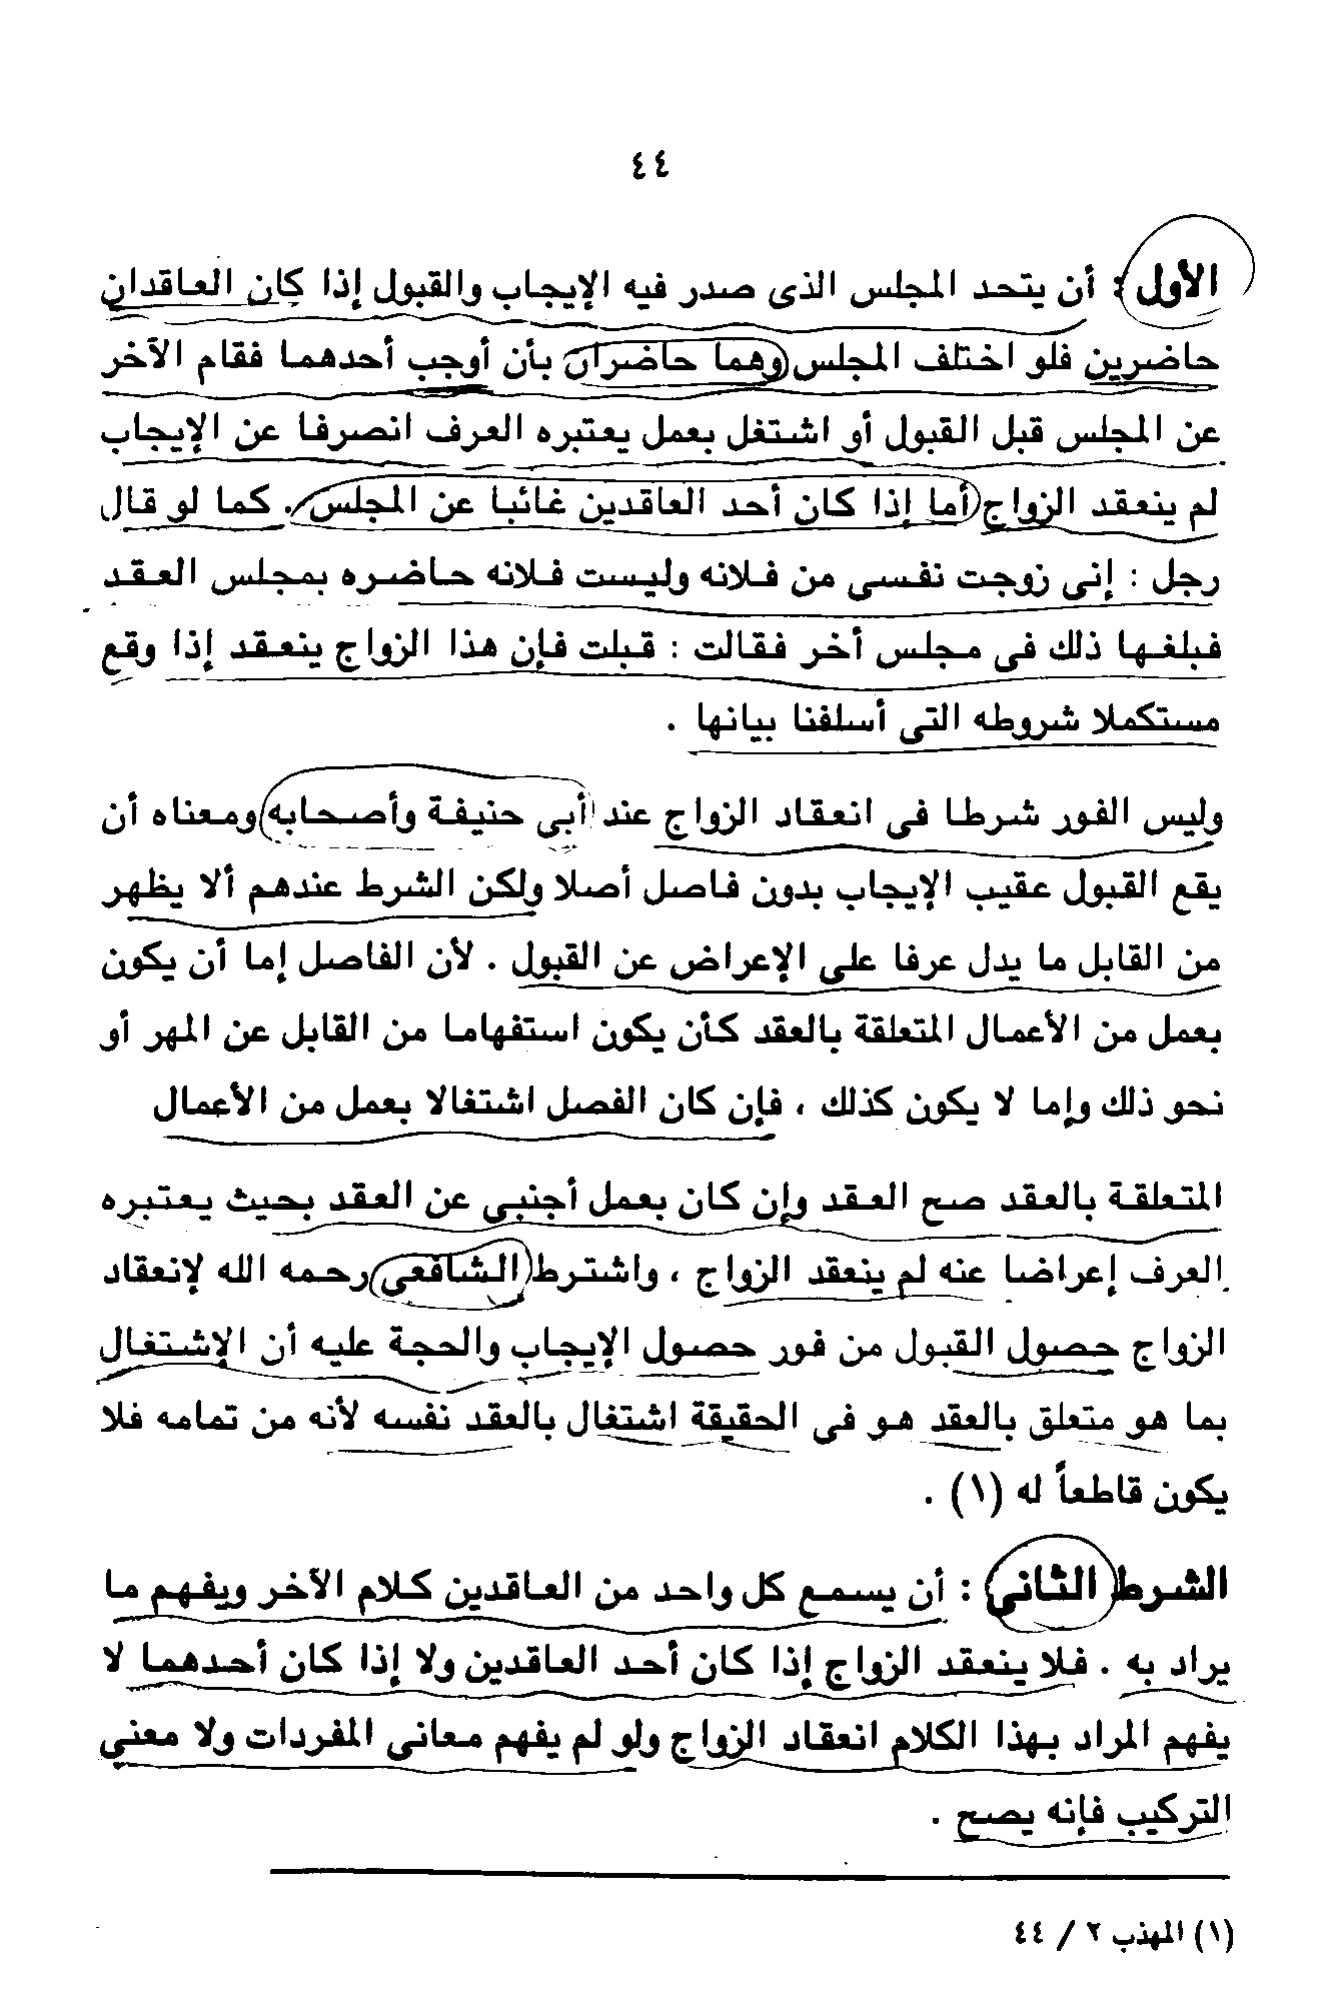 ٤٤
الأول : أن يتحد المجلس الذى صدر فيه الإيجاب والقبول إذا كان العاقدان
حاضرين فلو اختلف المجلس وهما حاضران بأن أوجب أحدهما فقام الآخر
عن المجلس قبل القبول أو اشتغل بعمل يعتبره العرف انصرفا عن الإيجاب
لم ينعقد الزواج أما إذا كان أحد العاقدين غائبا عن المجلس . كما لو قال
رجل : إنى زوجت نفسى من فلانه وليست فلانه حاضره بمجلس العقد
فبلغها ذلك فى مجلس أخر فقالت : قبلت فإن هذا الزواج ينعقد إذا وقع
مستكملا شروطه التى أسلفنا بيانها .
وليس الفور شرطا فى انعقاد الزواج عند أبى حنيفة وأصحابه ومعناه أن
يقع القبول عقيب الإيجاب بدون فاصل أصلا ولكن الشرط عندهم ألا يظهر
من القابل ما يدل عرفا على الإعراض عن القبول . لأن الفاصل إما أن يكون
بعمل من الأعمال المتعلقة بالعقد كأن يكون استفهاما من القابل عن المهر أو
نحو ذلك وإما لا يكون كذلك ، فإن كان الفصل اشتغالا بعمل من الأعمال
المتعلقة بالعقد صح العقد وإن كان بعمل أجنبى عن العقد بحيث يعتبره
العرف إعراضا عنه لم ينعقد الزواج ، واشترط الشافعى رحمه الله لإنعقاد
الزواج حصول القبول من فور حصول الإيجاب والحجة عليه أن الإشتغال
بما هو متعلق بالعقد هو فى الحقيقة اشتغال بالعقد نفسه لأنه من تمامه فلا
يكون قاطعاً له (١) .
الشرط الثانى : أن يسمع كل واحد من العاقدين كلام الآخر ويفهم ما
يراد به . فلا ينعقد الزواج إذا كان أحد العاقدين ولا إذا كان أحدهما لا
يفهم المراد بهذا الكلام انعقاد الزواج ولو لم يفهم معانى المفردات ولا معني
التركيب فإنه يصح .
(١) المهذب ٢ / ٤٤